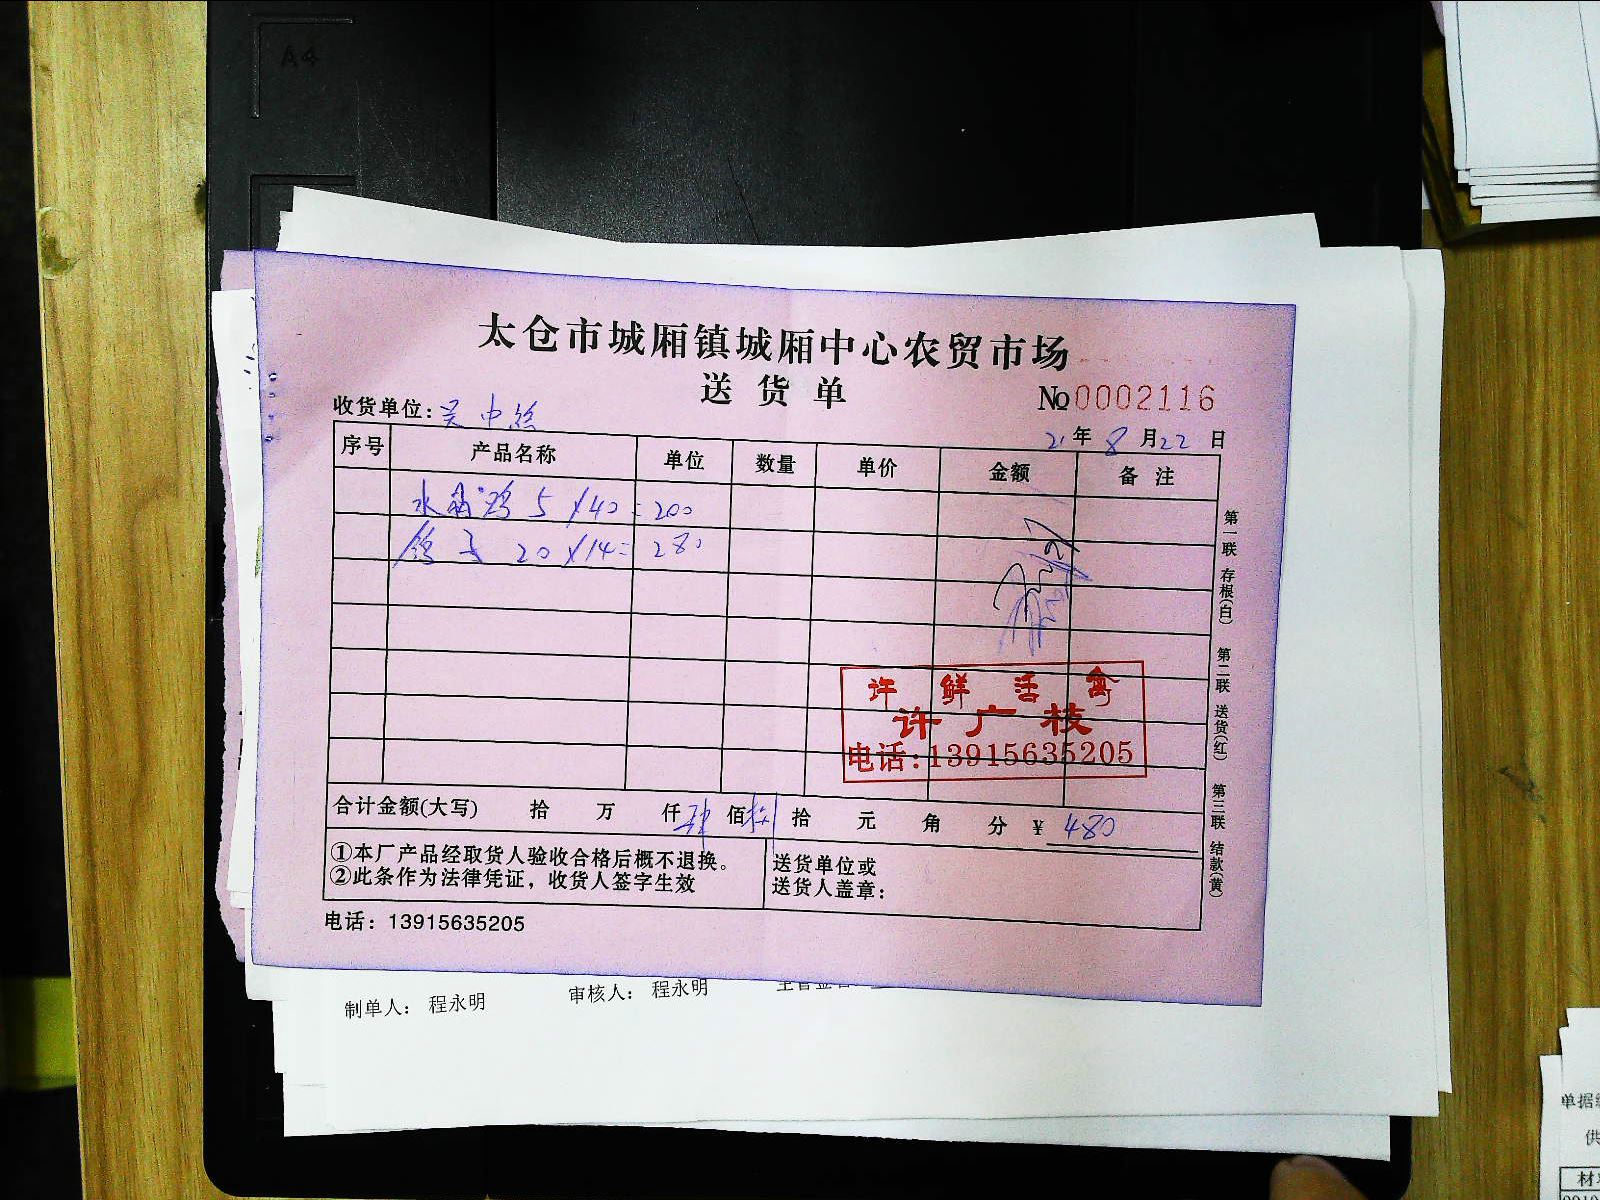 A4
太仓市城厢镇城厢中心农贸市场
送货单
№0002116
收货单位：吴中
21年8月22日
序号 产品名称 单位 数量 单价 金额 备注
水 鸡 5×40=200
鸽子 20×14=280
许 鲜活禽
许广枝
电话:13915635205
合计金额(大写) 拾 万 仟肆佰捌拾 元 角 分 ¥ 480
①本厂产品经取货人验收合格后概不退换。
②此条作为法律凭证，收货人签字生效
送货单位或
送货人盖章：
电话：13915635205
第一联 存根(白) 第二联 送货(红) 第三联 结款(黄)
制单人： 程永明 审核人： 程永明
单据
供
材